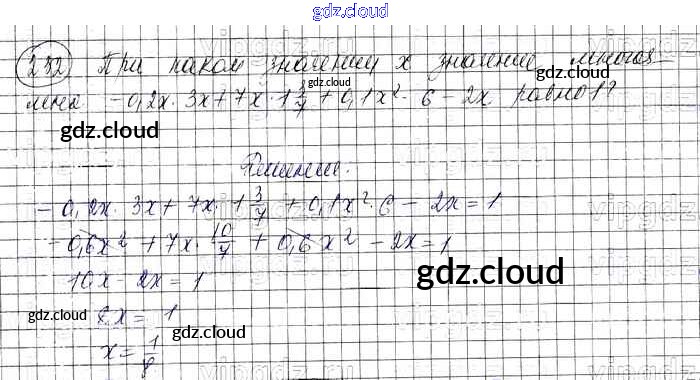 gdz.cloud
232) При каком значении x значение многоч-
лена -0,2x · 3x + 7x · 1 3/7 + 0,1x² · 6 - 2x равно 1?
gdz.cloud
gdz.cloud
Решение:
-0,2x · 3x + 7x · 1 3/7 + 0,1x² · 6 - 2x = 1
-0,6x² + 7x · 10/7 + 0,6x² - 2x = 1
10x - 2x = 1
gdz.cloud
gdz.cloud
8x = 1
gdz.cloud
x = 1/8